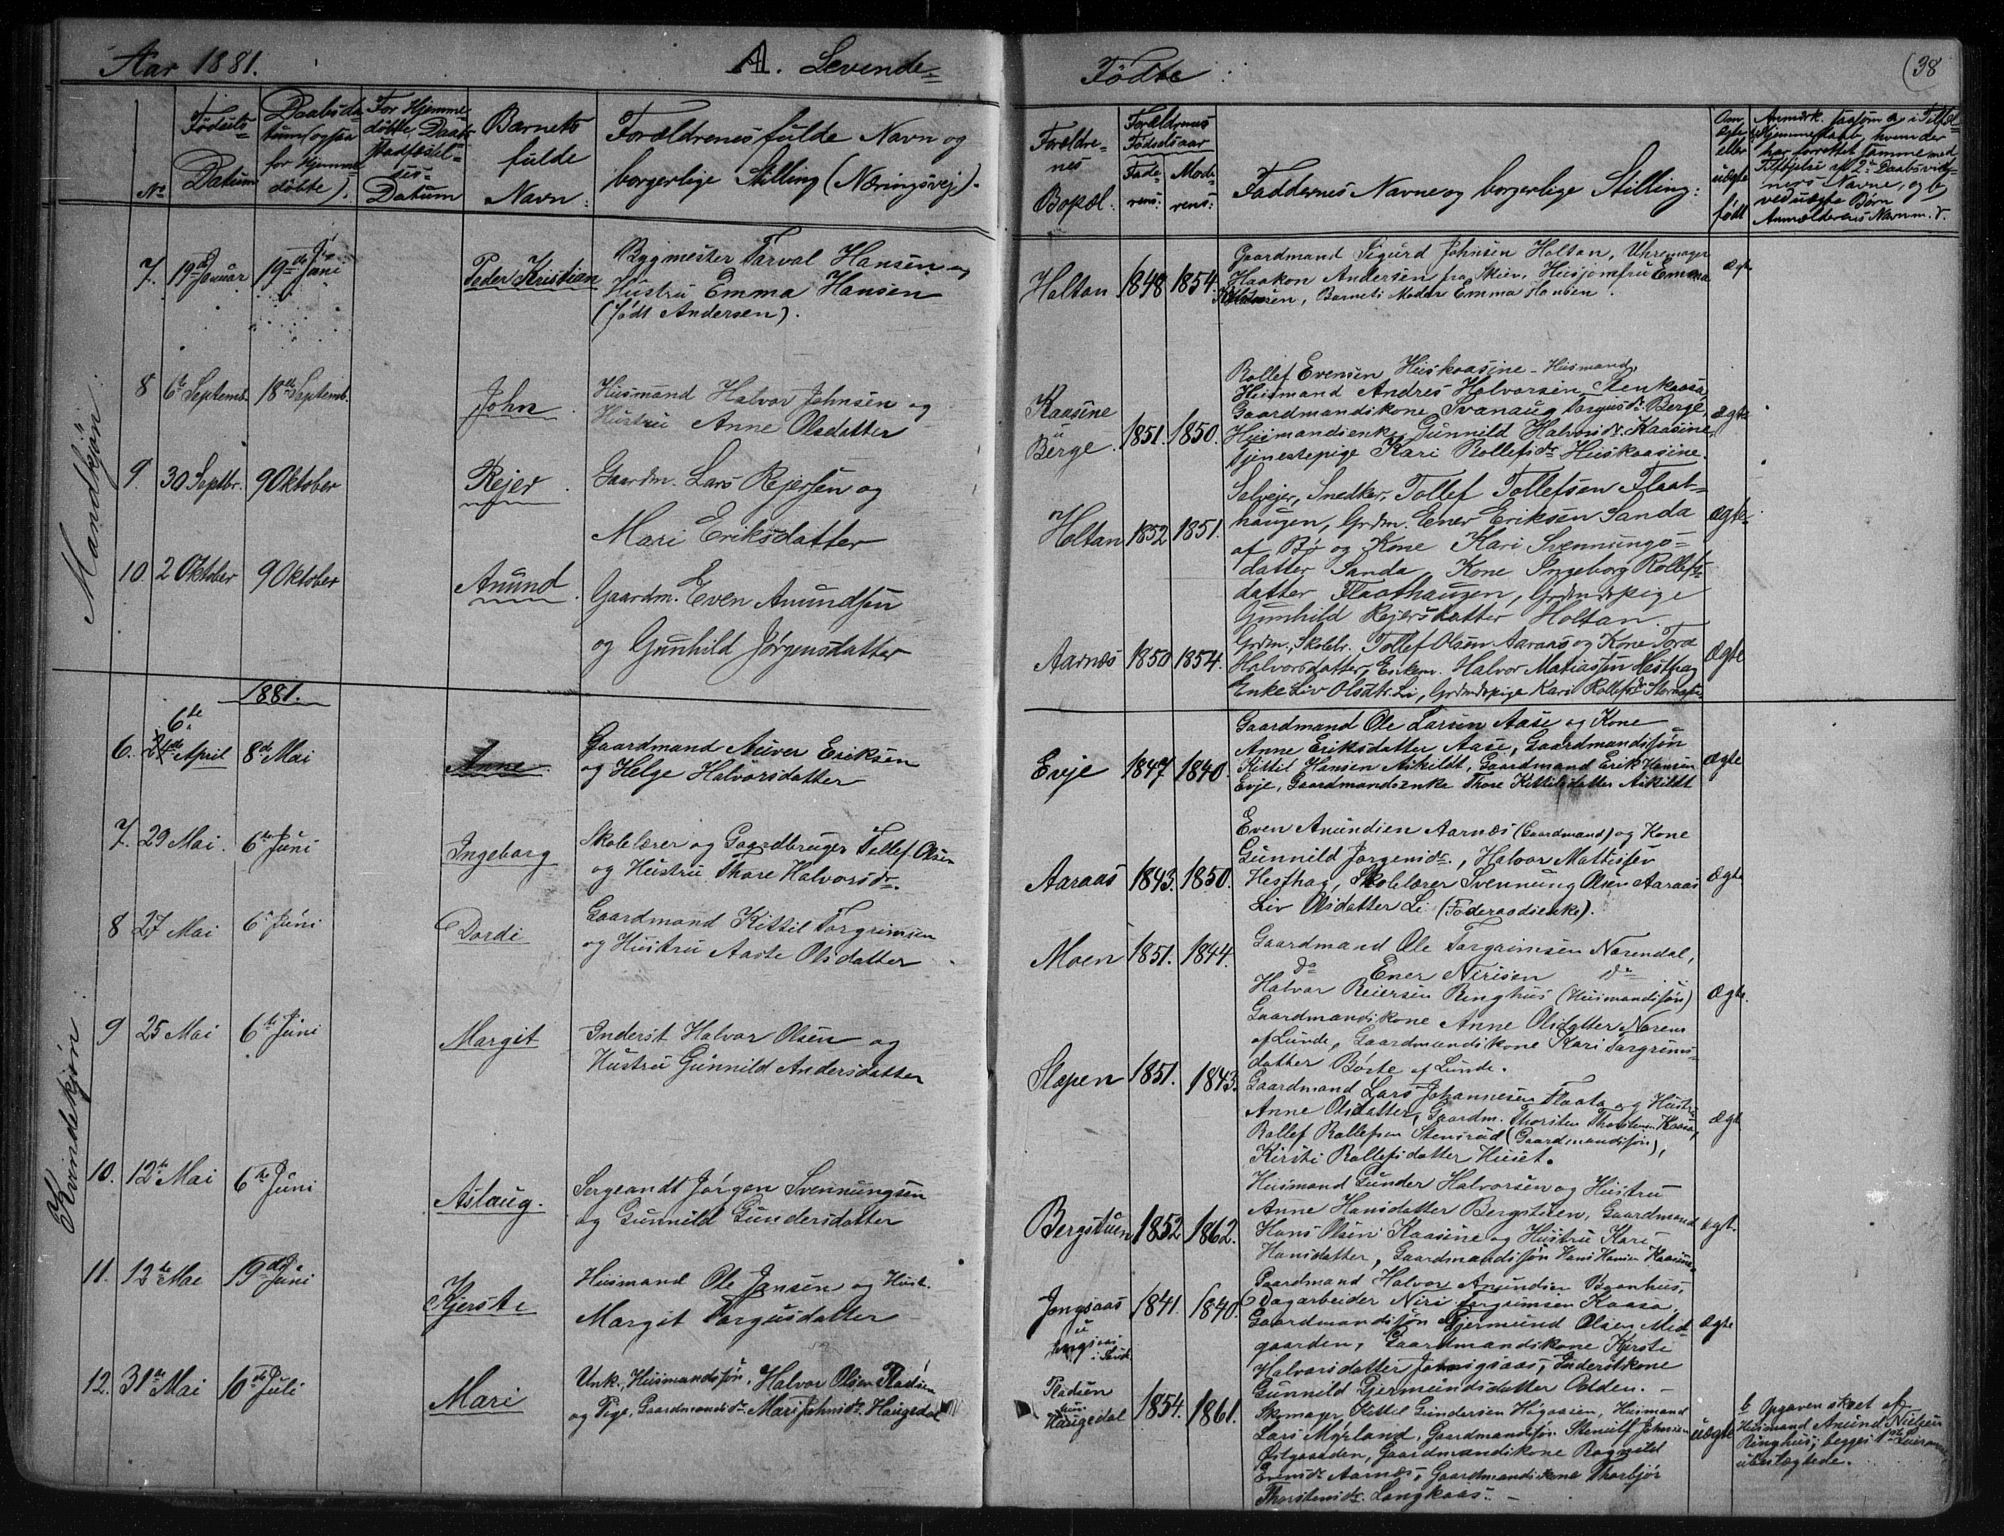 Aar 1881.
A. Levende=
Födte :
(38
No
Födsels=
Datum
Daabsda=
tum (ogsaa
for hjemme
döbte).
For Hjemme
döbte, Daabs
Stadfæstel=
ses=
Datum
Barnets
fulde
Navn:
Forældrenes fulde Navn og
borgerlige Stilling (Næringsvej).
Forældre=
nes
Bopæl.
Forældrenes
Födselsaar
Fade=
rens:
Mod=
rens:
Faddernes Navne og borgerlige Stilling:
Om
ægte
eller
uægte
født
Anmærk. saasom a, i Tilfæl=
de Hjemmedaab, hvem der
har forrettet samme med
Tilföielse af 2de Daabsvid=
ners Navne, og b,
ved uægte Børn
Anmelderens Navn m. v.
Mandkjön:
7. 19de Januar 19de Juni
Peder Kristian
Bygmester Tarval Hansen og
Hustru Emma Hansen
(født Andersen).
Holtan 1848 1854.
Gaardmand Sigurd Johnsen Holtan, Uhrmager
Haakon Andersen fra Skien, Husjomfru Emma
, Barnets Moder Emma Hansen.
Ægte
8 6te Septemb. 18de Septemb.
John
Husmand Halvor Johnsen og
Hustru Anne Olsdatter
Kaasine
u
Berge. 1851. 1850.
Rollef Evensen Huskaasine - Husmand,
Husmand Andres Halvorsen Stenkaasa,
Gaardmandskone Svanaug Torgusdr. Berge,
Husmandsenke Gunnild Halvorsdr. Kaasine,
Tjenestepige Kari Rollefsdr. Huskaasine.
Ægte
9 30 Septbr. 9 Oktober
Rejer
Gaardm. Lars Rejersen og
Mari Eriksdatter
Holtan 1852 1851.
Selvejer, Snedker, Tollef Tollefsen Flaat=
haugen, Grdm. Ener Eriksen Sanda
af Bø og Kone Kari Svennungs=
datter Sanda, Kone Ingeborg Rollefs=
datter Flaathaugen, Grdmdspige
Gunhild Rejersdatter Holtan.
Ægte
10. 2 Oktober 9 Oktober
Anund.
Gaardm. Even Anundsen
og Gunhild Jørgensdatter
Aarnæs 1850 1854.
Grdm., Skolelr. Tollef Olsen Aaraas og Kone Tord
Halvorsdatter, Enkem. Halvor Matiassen Hesthag
Enke Liv Olsdtr. Li, Grdmdspige Kari Rollefsdr
Ægte
Kvindekjön:
1881.
6te
6. 24de April 8de Mai
Anne.
Gaardmand Auver Eriksen
og Helge Halvorsdatter
Evje 1847 1840.
Gaardmand Ole Larsen Aase og Kone
Anne Eriksdatter Aase, Gaardmandssøn
Kittil Hansen Askildt, Gaardmand Erik Hansen
Evje, Gaardmandsenke Thore Kittilsdatter Askildt
Ægte
7. 29 Mai. 6te Juni
Ingeborg
Skolelærer og Gaardbruger Tellef Olsen
og Hustru Thore Halvorsdr.
Aaraas 1843. 1850.
Even Anundsen Aarnæs (Gaardmand) og Kone
Gunnild Jørgensdr., Halvor Mattisfev
Hesthag, Skolelærer Svennung Olsen Aaraas
Liv Olsdatter Li (Føderaadsenke).
Ægte
8 27 Mai 6te Juni
Dordi
Gaardmand Kittil Torgrimsen
og Hustru Aaste Olsdatter
Moen 1851. 1844.
Gaardmand Ole Torgrimsen Norendal,
do Ener Nirisen do
Halvor Reiersen Ringhus (Husmandssøn)
Gaardmandskone Anne Olsdatter Norem
af Lunde, Gaardmandskone Kari Torgrims=
datter Børte af Lunde.
Ægte.
9 25 Mai 6te Juni
Margit
Inderst Halvor Olsen og
Hustru Gunnild Andersdatter
Stapen 1851. 1843.
Gaardmand Lars Johannesen Flaata og Hustru
Anne Olsdatter, Gaardm. Thorsten Thorstensen Kaasa,
Rollef Rollefsen Stensrud (Gaardmandssøn),
Kirsti Rollefsdatter Huset.
Ægte
10. 12te Mai 6te Juni
Aslaug.
Sergeandt Jörgen Svennungsen
og Gunnild Gundersdatter
Bergstuen 1852 1862.
Husmand Gunder Halvorsen og Hustru
Anne Hansdatter Bergstuen, Gaardmand
Hans Olsen Kaasine og Hustru Kari
Hansdatter, Gaardmandssøn Hans Hansen Kaasine
Ægt.
11. 12te Mai 19de Juni
Kjersti
Husmand Ole Jansen og Hust.
Margit Torgusdatter
Jonsaas
u
1841. 1840.
Gaardmand Halvor Anundsen Bøenhus,
Dagarbeider Niri Torgrimsen Kaasa,
Gaardmandssøn Gjermund Olsen Mid=
gaarden, Gaardmandskone Kirsti
Halvorsdatter Jonsaas, Inderstkone
Gunnild Gjermundsdatter Odden. -
Ægte
12. 31te Mai 10de Juli
Mari
Unk., Husmandssøn, Halvor Olsen Pladsen
og Pige, Gaardmandsdr. Mari Johnsdr. Haugedal
Pladsen
Haugedal 1854. 1861.
Skomager Kittil Gundersen Høgaasen, Husmand
Lars Myrland, Gaardmandssøn Stenulf Johnsen
Østgaarden, Gaardmandskone Ragnild
Evensdr. Aarnæs, Gaardmandskone Thorbjør
Thorstensdr. Langkaas. -
uægte
b Opgaven skeet af
Husmand Anund Nielsen
Ringhus; begges 1ste Leiermaal
ubeslægtede.